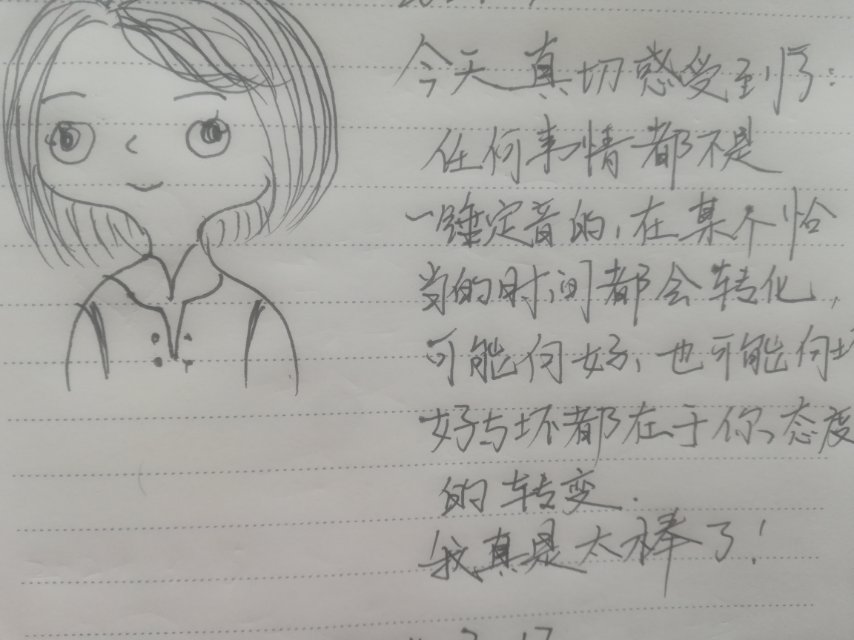 今天真切感受到了:
任何事情都不是
一锤定音的,在某个恰
当的时间都会转化,
可能向好、也可能向坏
好与坏都在于你、态度
的转变.
我真是太棒了!